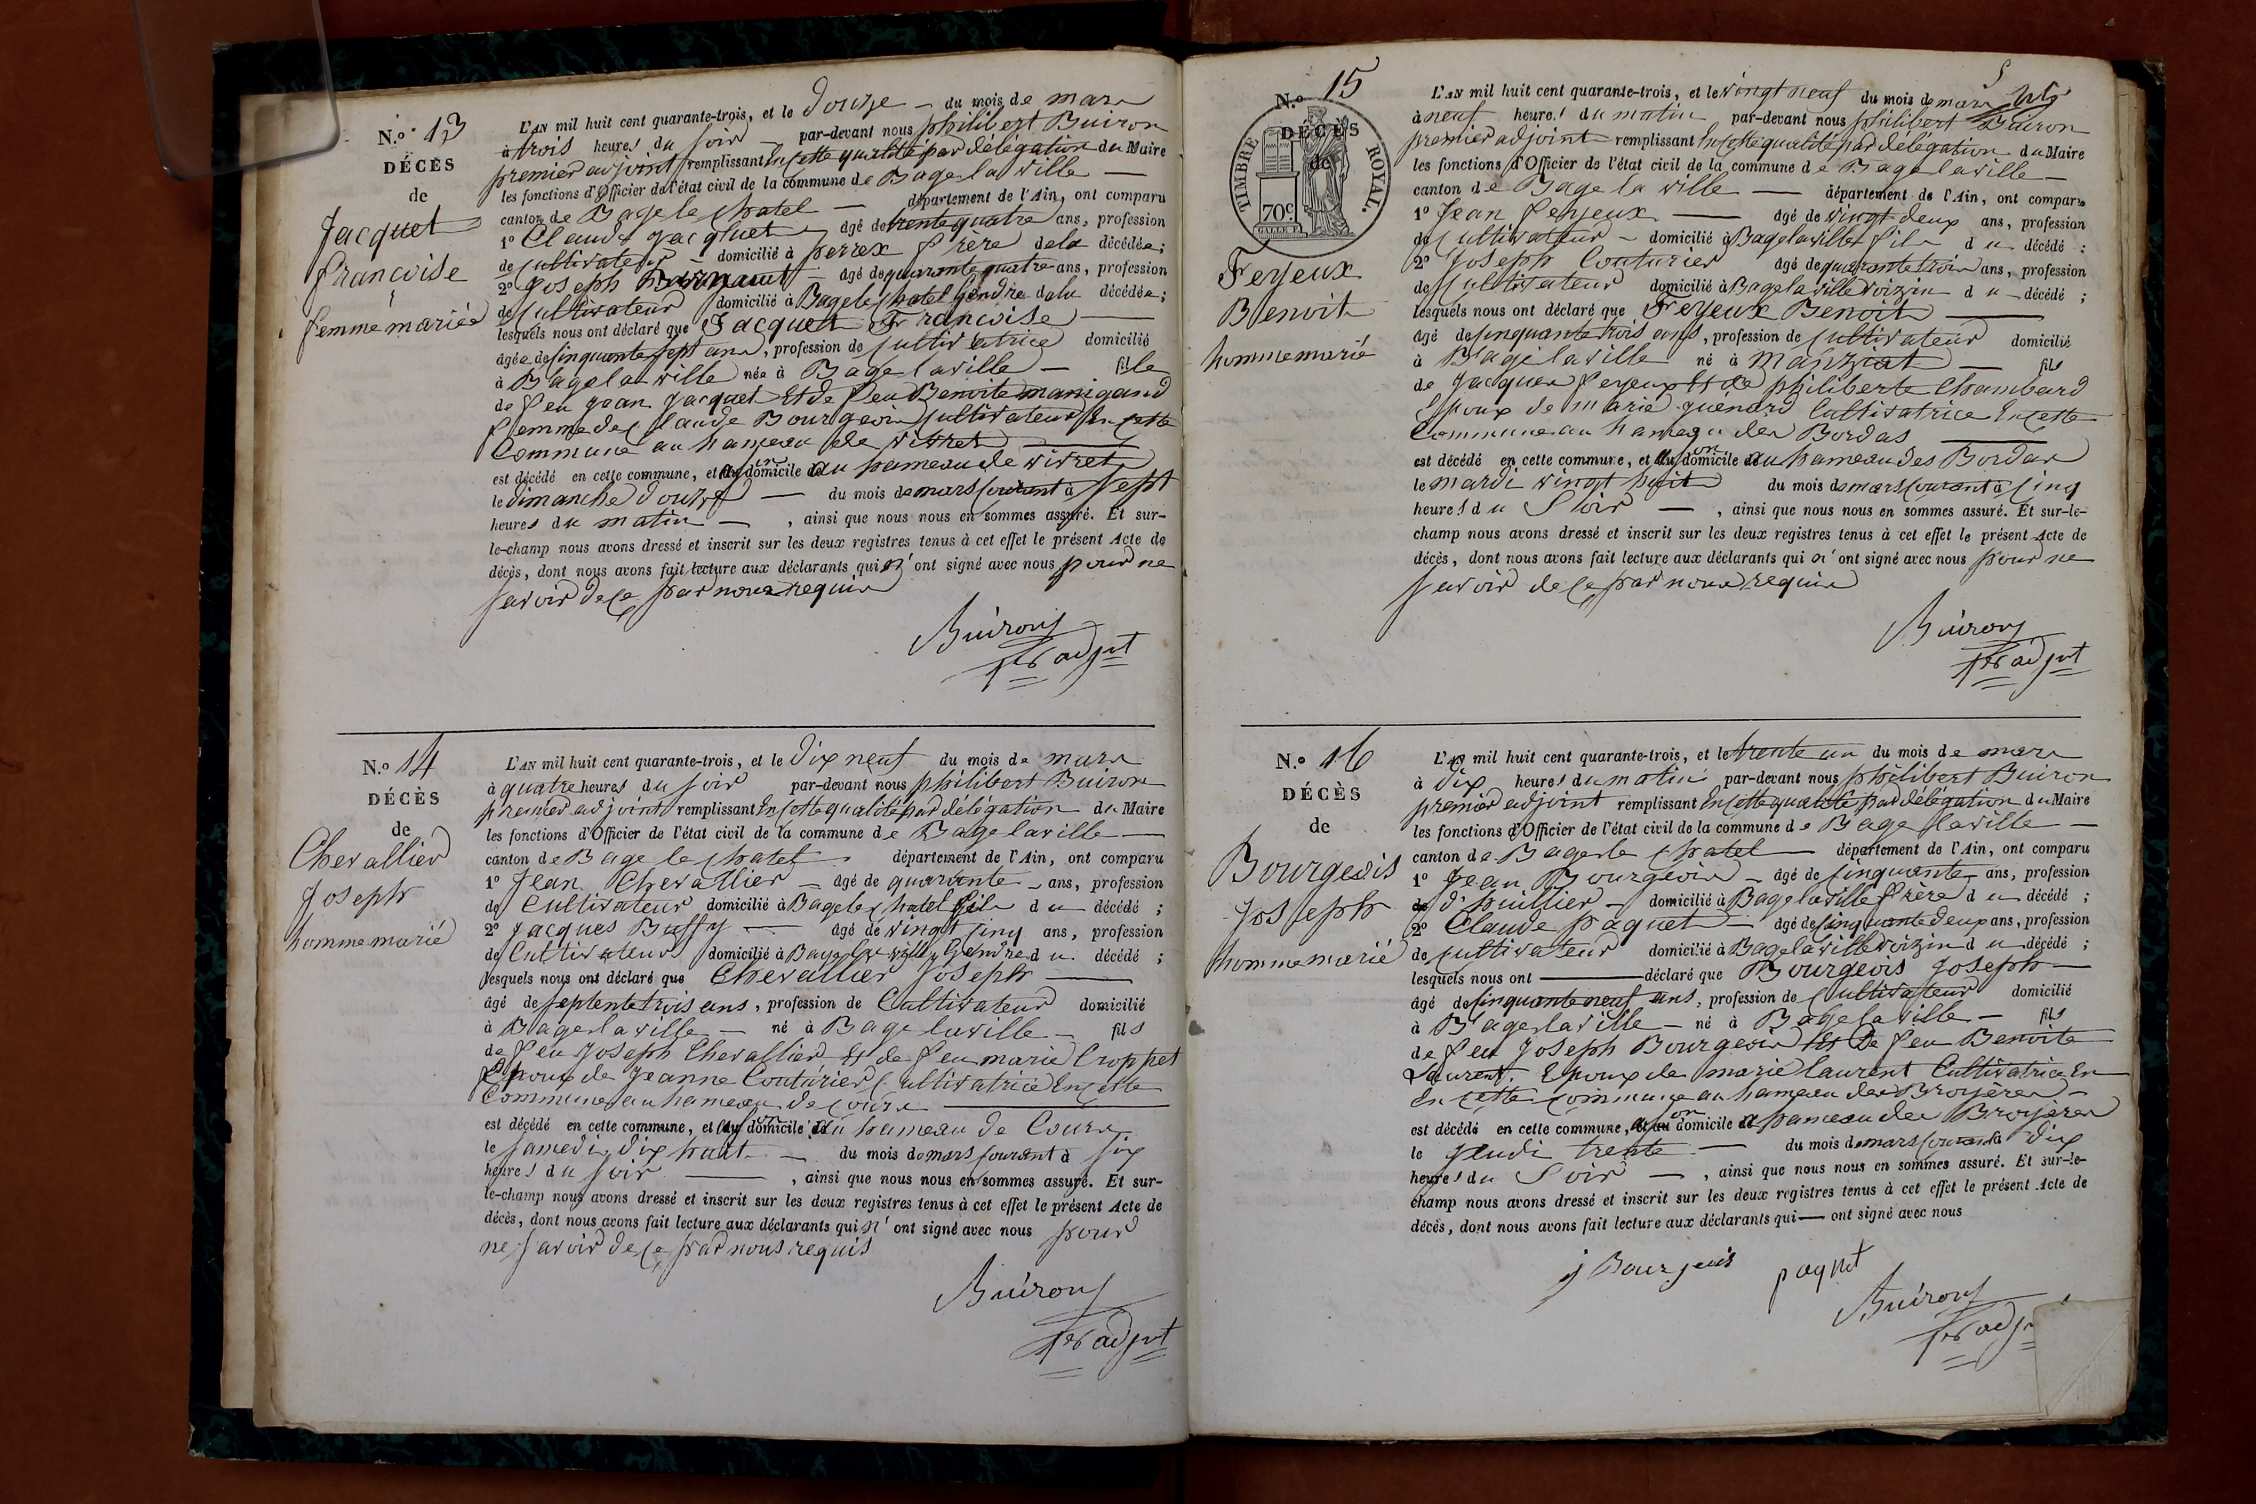 N.o 13
DÉCÈS
de
Jacquet
françoise
femme mariée
L'AN mil huit cent quarante-trois, et le douze du mois de mars
à trois heures du soir par-devant nous philibert Buiron
premier adjoint remplissant En cette qualité par délégation du Maire
les fonctions d'Officier de l'état civil de la commune de Bagé la ville
canton de Bagé le chatel département de l'Ain, ont comparu
1o Claude Jacquet âgé de trente quatre ans, profession
de cultivateur domicilié à perrex frère de la décédée ;
2o Joseph âgé de quarante quatre ans, profession
de cultivateur domicilié à Bagé le chatel Gendre de la décédée ;
lesquels nous ont déclaré que Jacquet Françoise
âgée de cinquante sept ans, profession de cultivatrice domicilié
à Bagé la ville née à Bagé la ville fille
de feu jean jacquet Et de feu Benoite manigand
femme de claude Bourgeois cultivateur En cette
Commune au hameau de vivret
est décédé en cette commune, et en son domicile au hameau de vivret
le dimanche douze du mois de mars courant à sept
heures du matin , ainsi que nous nous en sommes assuré. Et sur-
le-champ nous avons dressé et inscrit sur les deux registres tenus à cet effet le présent Acte de
décès, dont nous avons fait lecture aux déclarants qui n'ont signé avec nous pour ne
savoir de ce par nous requis
Buiron
1er adjnt
N.o 14
DÉCÈS
de
Chevallier
Joseph
homme marié
L'AN mil huit cent quarante-trois, et le dix neuf du mois de mars
à quatre heures du soir par-devant nous philibert Buiron
premier adjoint remplissant En cette qualité par délégation du Maire
les fonctions d'Officier de l'état civil de la commune de Bagé la ville
canton de Bagé le chatel département de l'Ain, ont comparu
1o Jean Chevallier âgé de quarante ans, profession
de Cultivateur domicilié à Bagé le chatel fils du décédé ;
2o Jacques Buffy âgé de vingt cinq ans, profession
de Cultivateur domicilié à Bagé la ville Gendre du décédé ;
lesquels nous ont déclaré que Chevallier Joseph
âgé de septente trois ans, profession de Cultivateur domicilié
à Bagé la ville né à Bagé la ville fils
de feu Joseph Chevallier Et de feu marie Croppet
Epoux de Jeanne Couturier Cultivatrice En cette
Commune au hameau de cours
est décédé en cette commune, et en son domicile au hameau de Cours
le samedi dix huit du mois de mars courant à six
heures du soir , ainsi que nous nous en sommes assuré. Et sur-
le-champ nous avons dressé et inscrit sur les deux registres tenus à cet effet le présent Acte de
décès, dont nous avons fait lecture aux déclarants qui n'ont signé avec nous pour
ne savoir de ce par nous requis
Buiron
1er adjnt
N.o 15
DÉCÈS
de
TIMBRE ROYAL.
70c.
Feyeux
Benoit
homme marié
L'AN mil huit cent quarante-trois, et le vingt neuf du mois de mars
à neuf heures du matin par-devant nous philibert Buiron
premier adjoint remplissant En cette qualité par délégation du Maire
les fonctions d'Officier de l'état civil de la commune de Bagé la ville
canton de Bagé la ville département de l'Ain, ont comparu
1o Jean feyeux âgé de vingt deux ans, profession
de cultivateur domicilié à Bagé la ville fils du décédé ;
2o Joseph Couturier âgé de quarante trois ans, profession
de cultivateur domicilié à Bagé la ville voizin du décédé ;
lesquels nous ont déclaré que Feyeux Benoit
âgé de cinquante trois ans, profession de cultivateur domicilié
à Bagé la ville né à Manziat fils
de Jacques feyeux Et de philiberte Chambard
Epoux de marie guénard Cultivatrice En cette
Commune au hameau des Bordas
est décédé en cette commune, et en son domicile au hameau des Bordas
le mardi vingt huit du mois de mars courant à cinq
heures du Soir , ainsi que nous nous en sommes assuré. Et sur-le-
champ nous avons dressé et inscrit sur les deux registres tenus à cet effet le présent Acte de
décès, dont nous avons fait lecture aux déclarants qui n'ont signé avec nous pour ne
savoir de ce par nous requis
Buiron
1er adjnt
N.o 16
DÉCÈS
de
Bourgeois
Joseph
homme marié
L'AN mil huit cent quarante-trois, et le trente un du mois de mars
à dix heures du matin par-devant nous philibert Buiron
premier adjoint remplissant En cette qualité par délégation du Maire
les fonctions d'Officier de l'état civil de la commune de Bagé la ville
canton de Bagé le chatel département de l'Ain, ont comparu
1o Jean Bourgeois âgé de cinquante ans, profession
d'huillier domicilié à Bagé la ville frère du décédé ;
2o Claude paquet âgé de cinquante deux ans, profession
de cultivateur domicilié à Bagé la ville voizin du décédé ;
lesquels nous ont déclaré que Bourgeois Joseph
âgé de cinquante neuf ans, profession de cultivateur domicilié
à Bagé la ville né à Bagé la ville fils
de feu Joseph Bourgeois Et De feu Benoite
Laurent. Epoux de marie laurent Cultivatrice En
En cette commune au hameau des Broyères
est décédé en cette commune, en son domicile a hameau des Broyères
le jeudi trente du mois de mars courant à dix
heures du Soir , ainsi que nous nous en sommes assuré. Et sur-le-
champ nous avons dressé et inscrit sur les deux registres tenus à cet effet le présent Acte de
décès, dont nous avons fait lecture aux déclarants qui ont signé avec nous
j Bourjeois paquet
Buiron
1er adj